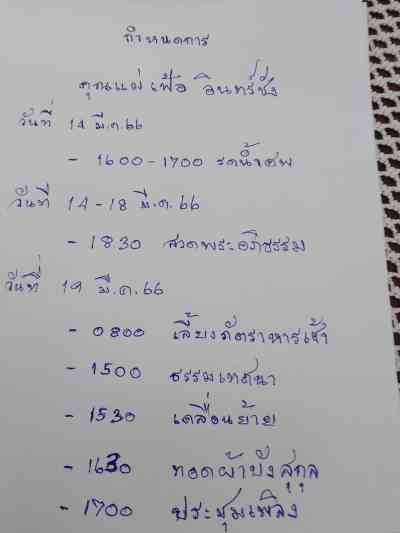 กำหนดการ
คุณแม่ เฟือ อินทร์ชัง
วันที่ 14 มี.ค. 66
- 1600-1700 รดน้ำศพ
วันที่ 14-18 มี.ค. 66
- 1830 สวดพระอภิธรรม
วันที่ 19 มี.ค. 66
- 0800 เลี้ยงภัตราหารเช้า
- 1500 ธรรมเทศนา
- 1530 เคลื่อนย้าย
- 1630 ทอดผ้าบังสุกุล
- 1700 ประชุมเพลิง